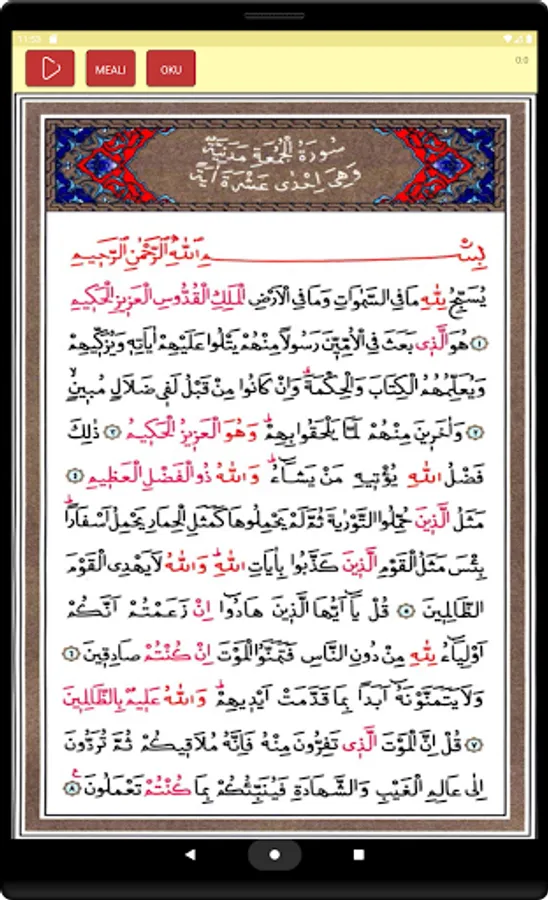 11:53
MEALI
OKU
0:0
سُورَةُ الْجُمُعَةِ مَدَنِيَّةٌ
وَهِيَ اِحْدٰى عَشْرَةَ اٰيَةً
بِسْمِ اللّٰهِ الرَّحْمٰنِ الرَّحِيمِ
يُسَبِّحُ لِلّٰهِ مَا فِي السَّمٰوَاتِ وَمَا فِي الْاَرْضِ الْمَلِكِ الْقُدُّوسِ الْعَزِيزِ الْحَكِيمِ
﴿١﴾ هُوَ الَّذِي بَعَثَ فِي الْاُمِّيّٖنَ رَسُولاً مِنْهُمْ يَتْلُوا عَلَيْهِمْ اٰيَاتِهٖ وَيُزَكّٖيهِمْ
وَيُعَلِّمُهُمُ الْكِتَابَ وَالْحِكْمَةَۗ وَاِنْ كَانُوا مِنْ قَبْلُ لَفِي ضَلَالٍ مُبِينٍۙ
﴿٢﴾ وَاٰخَرِينَ مِنْهُمْ لَمَّا يَلْحَقُوا بِهِمْۗ وَهُوَ الْعَزِيزُ الْحَكِيمُ ﴿٣﴾ ذٰلِكَ
فَضْلُ اللّٰهِ يُؤْتِيهِ مَنْ يَشَٓاءُۗ وَاللّٰهُ ذُو الْفَضْلِ الْعَظِيمِ ﴿٤﴾
مَثَلُ الَّذِينَ حُمِّلُوا التَّوْرٰيةَ ثُمَّ لَمْ يَحْمِلُوهَا كَمَثَلِ الْحِمَارِ يَحْمِلُ اَسْفَاراًۗ
بِئْسَ مَثَلُ الْقَوْمِ الَّذِينَ كَذَّبُوا بِاٰيَاتِ اللّٰهِۗ وَاللّٰهُ لَا يَهْدِي الْقَوْمَ
الظَّالِمِينَ ﴿٥﴾ قُلْ يَٓا اَيُّهَا الَّذِينَ هَادُٓوا اِنْ زَعَمْتُمْ اَنَّكُمْ
اَوْلِيَٓاءُ لِلّٰهِ مِنْ دُونِ النَّاسِ فَتَمَنَّوُا الْمَوْتَ اِنْ كُنْتُمْ صَادِقِينَ ﴿٦﴾
وَلَا يَتَمَنَّوْنَهُٓ اَبَداً بِمَا قَدَّمَتْ اَيْدِيهِمْۗ وَاللّٰهُ عَلِيمٌ بِالظَّالِمِينَ
﴿٧﴾ قُلْ اِنَّ الْمَوْتَ الَّذِي تَفِرُّونَ مِنْهُ فَاِنَّهُ مُلَاقِيكُمْ ثُمَّ تُرَدُّونَ
اِلٰى عَالِمِ الْغَيْبِ وَالشَّهَادَةِ فَيُنَبِّئُكُمْ بِمَا كُنْتُمْ تَعْمَلُونَ ﴿٨﴾